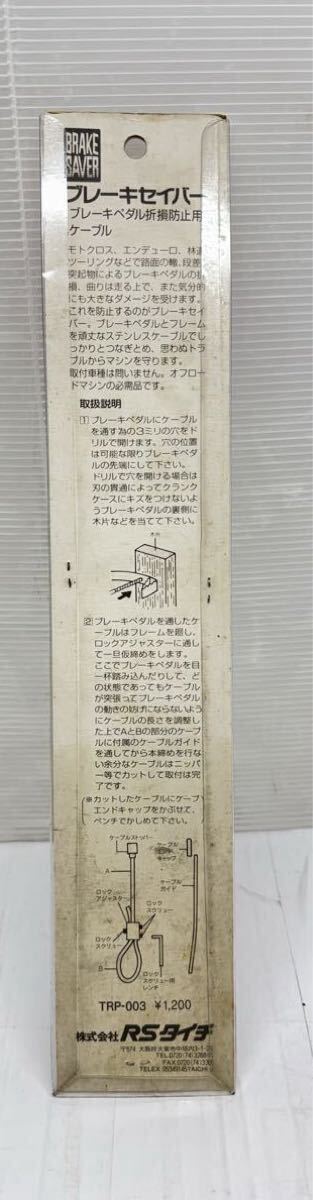 BRAKE
SAVER
ブレーキセイバー
ブレーキペダル折損防止用
ケーブル
モトクロス、エンデューロ、林道
ツーリングなどで路面の轍、段差
突起物によるブレーキペダルの折
損、曲りは走る上で、また気分的
にも大きなダメージを受けます。
これを防止するのがブレーキセイ
バー。ブレーキペダルとフレーム
を頑丈なステンレスケーブルでし
っかりとつなぎとめ、思わぬトラ
ブルからマシンを守ります。
取付車種は問いません。オフロー
ドマシンの必需品です。
取扱説明
1 ブレーキペダルにケーブル
を通す為の3ミリの穴をド
リルで開けます。穴の位置
は可能な限りブレーキペダ
ルの先端にして下さい。
ドリルで穴を開ける場合は
刃の貫通によってクランク
ケースにキズをつけないよ
うブレーキペダルの裏側に
木片などを当てて下さい。
木片
2 ブレーキペダルを通したケ
ーブルはフレームを廻し、
ロックアジャスターに通し
て一旦仮締めをします。
ここでブレーキペダルを目
一杯踏み込んだりして、ど
の状態であってもケーブル
が突張ってブレーキペダル
の動きの妨げにならないよう
にケーブルの長さを調整し
た上でAとBの部分のケーブ
ルに付属のケーブルガイド
を通してから本締めを行な
い余分なケーブルはニッパ
ー等でカットして取付は完
了です。
※カットしたケーブルにケーブ
エンドキャップをかぶせて、
ペンチでかしめて下さい。
ケーブルストッパー
A
ロック
アジャスター
ロック
スクリュー
ロック
スクリュー
B
ケーブル
キャップ
ケーブル
ガイド
ロック
スクリュー用
レンチ
TRP-003 ¥1,200
株式会社 RSタイチ
〒574 大阪府大東市中垣内3-1-
TEL.0720(74)
FAX.0720(74)
TELEX